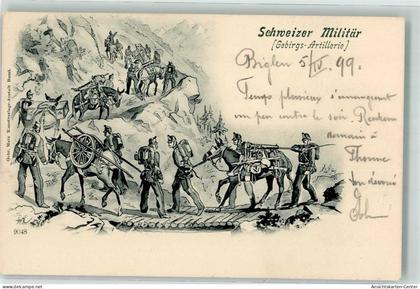 Schweizer Militär
[Gebirgs-Artillerie]
Biglen 5/IV. 99.
Temps pluvieux s'arrangeant
un peu contre le soir.
demain à
Thoune
ton dévoué
Gebr. Metz Kunstverlags-Anstalt Basel.
9048
Ansichtskarten-Center